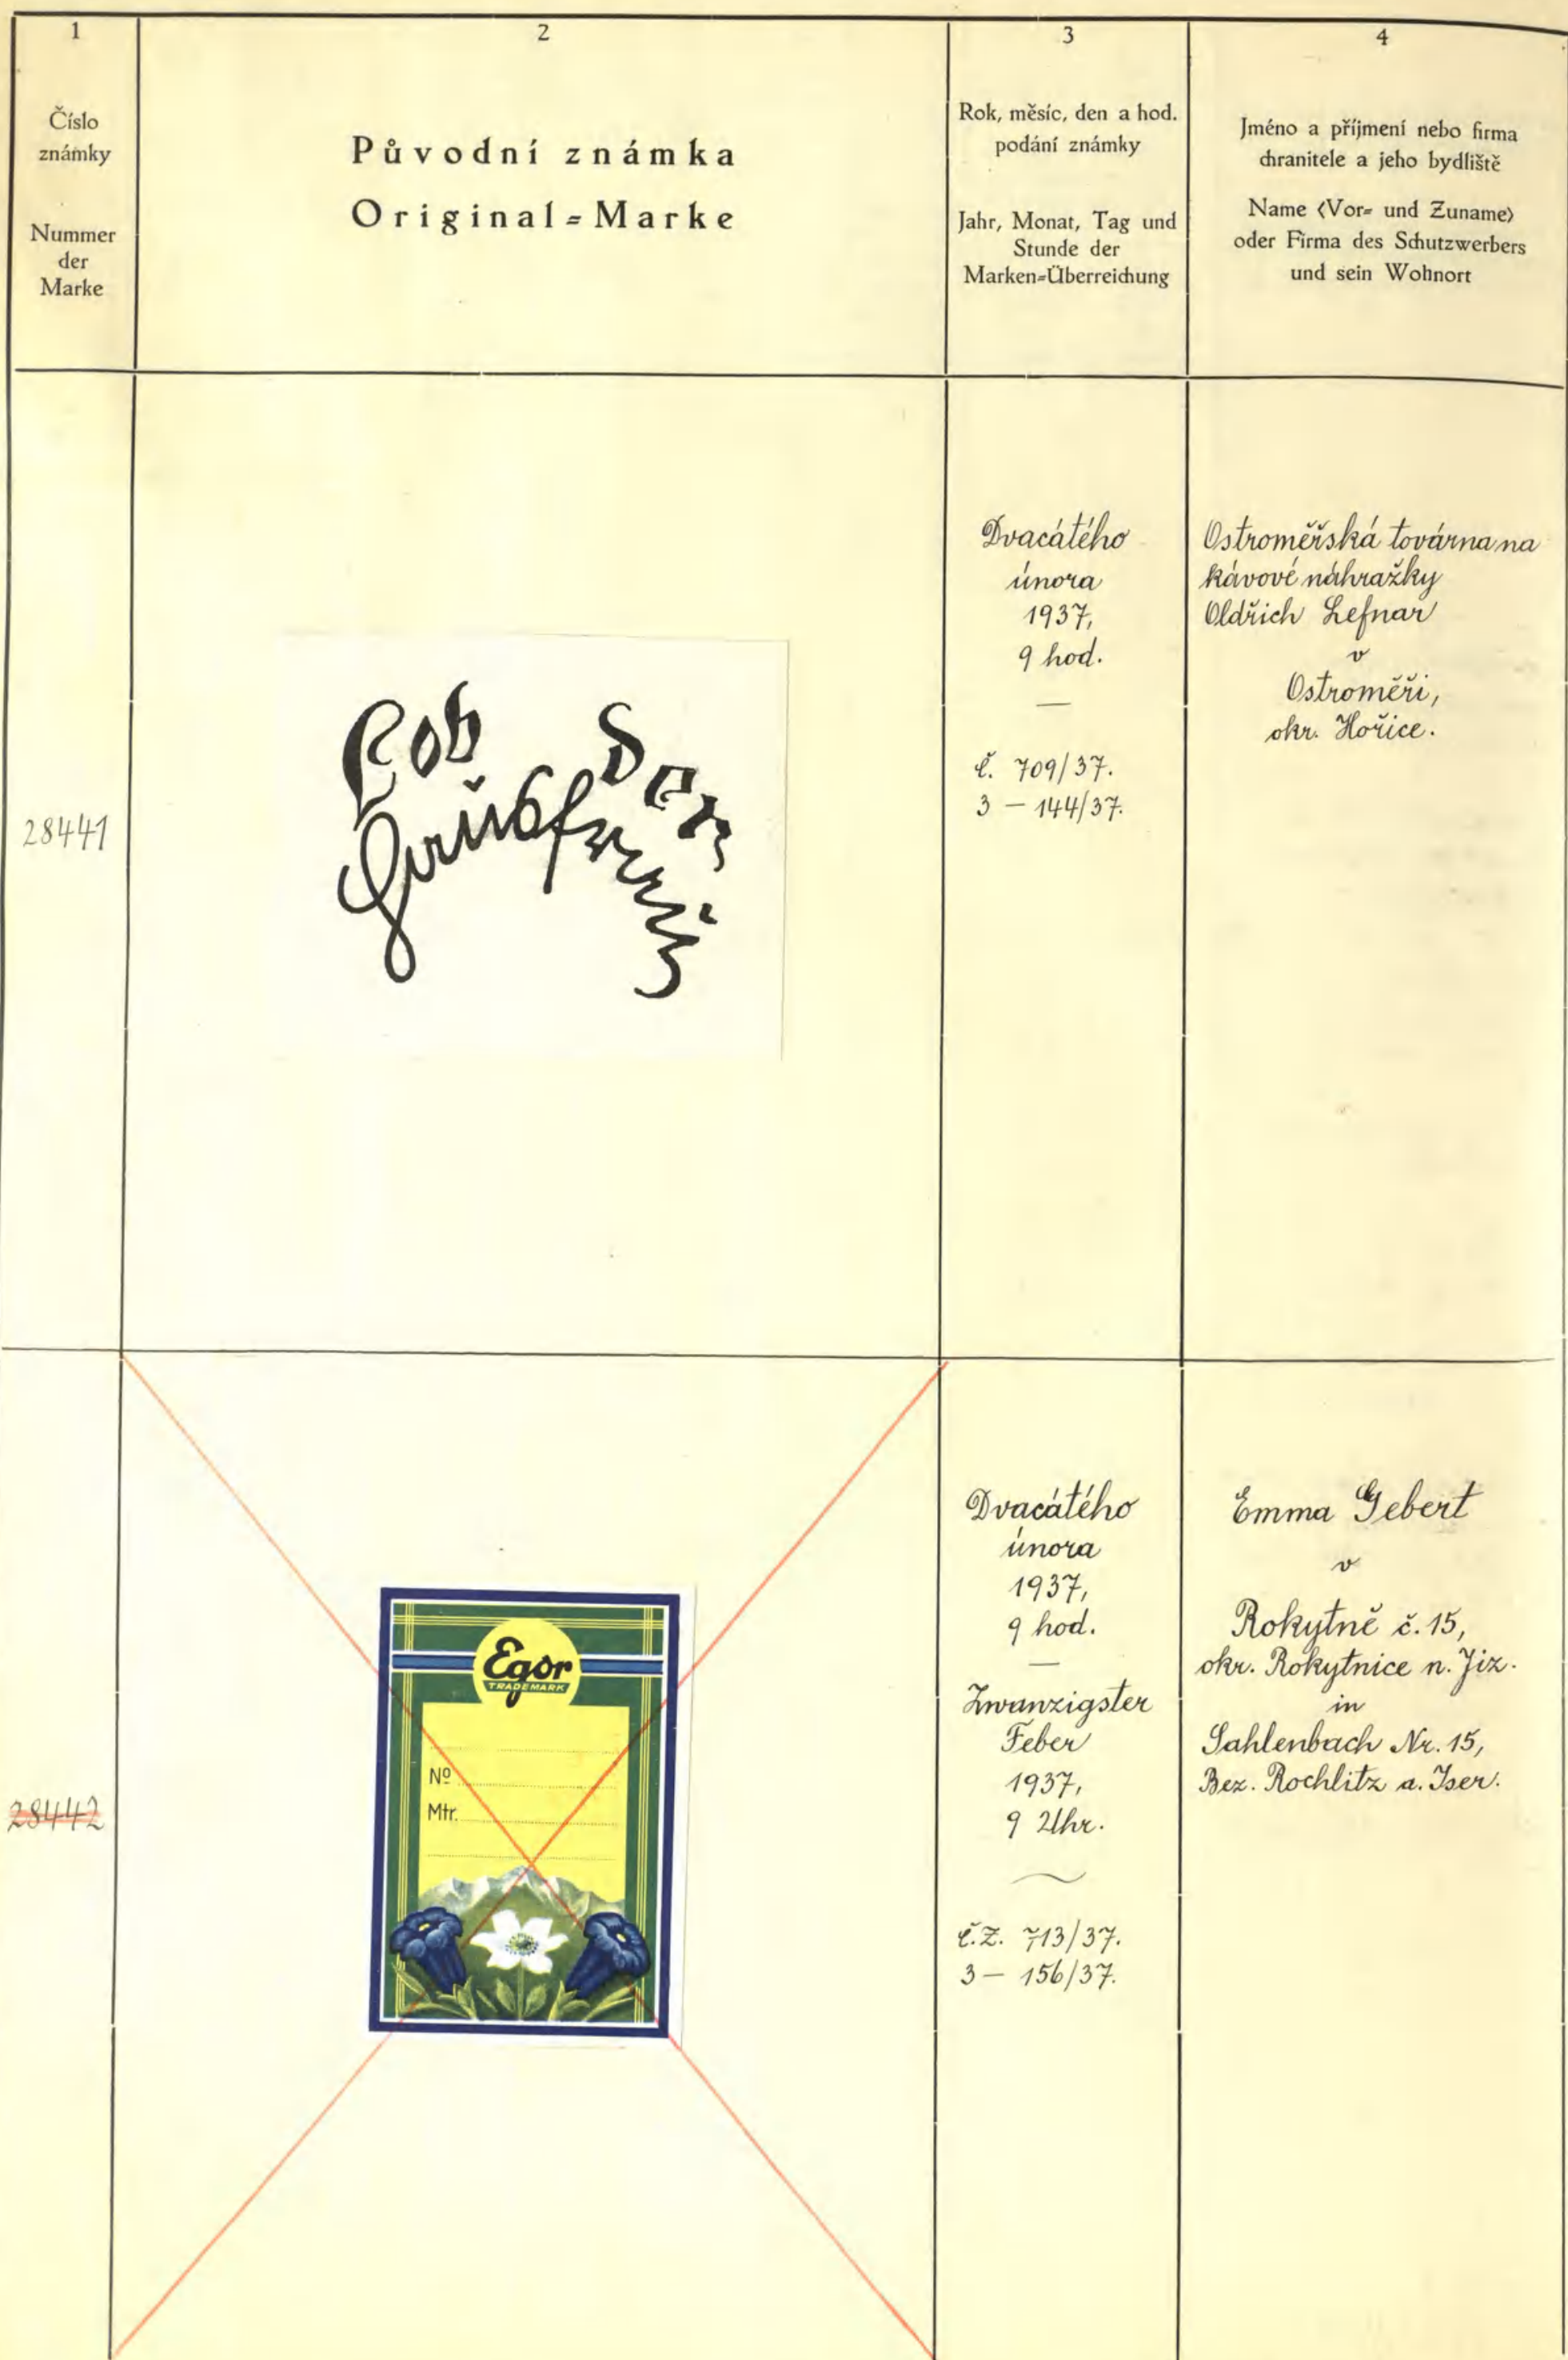 1
2
3
4
Číslo
známky
Nummer
der
Marke
Původní známka
Original=Marke
Rok, měsíc, den a hod.
podání známky
Jahr, Monat, Tag und
Stunde der
Marken=Überreichung
Jméno a příjmení nebo firma
chranitele a jeho bydliště
Name (Vor= und Zuname)
oder Firma des Schutzwerbers
und sein Wohnort
28441
Lob der
Hausfrau
Dvacátého
února
1937,
9 hod.
—
č. 709/37.
3 — 144/37.
Ostroměřská továrna na
kávové náhražky
Oldřich Lefnar
v
Ostroměři,
okr. Hořice.
28442
Egor
TRADEMARK
Nº
Mtr.
Dvacátého
února
1937,
9 hod.
—
Zwanzigster
Feber
1937,
9 Uhr.
č.Z. 713/37.
3 — 156/37.
Emma Gebert
v
Rokytně č. 15,
okr. Rokytnice n. Jiz.
in
Sahlenbach Nr. 15,
Bez. Rochlitz a. Iser.